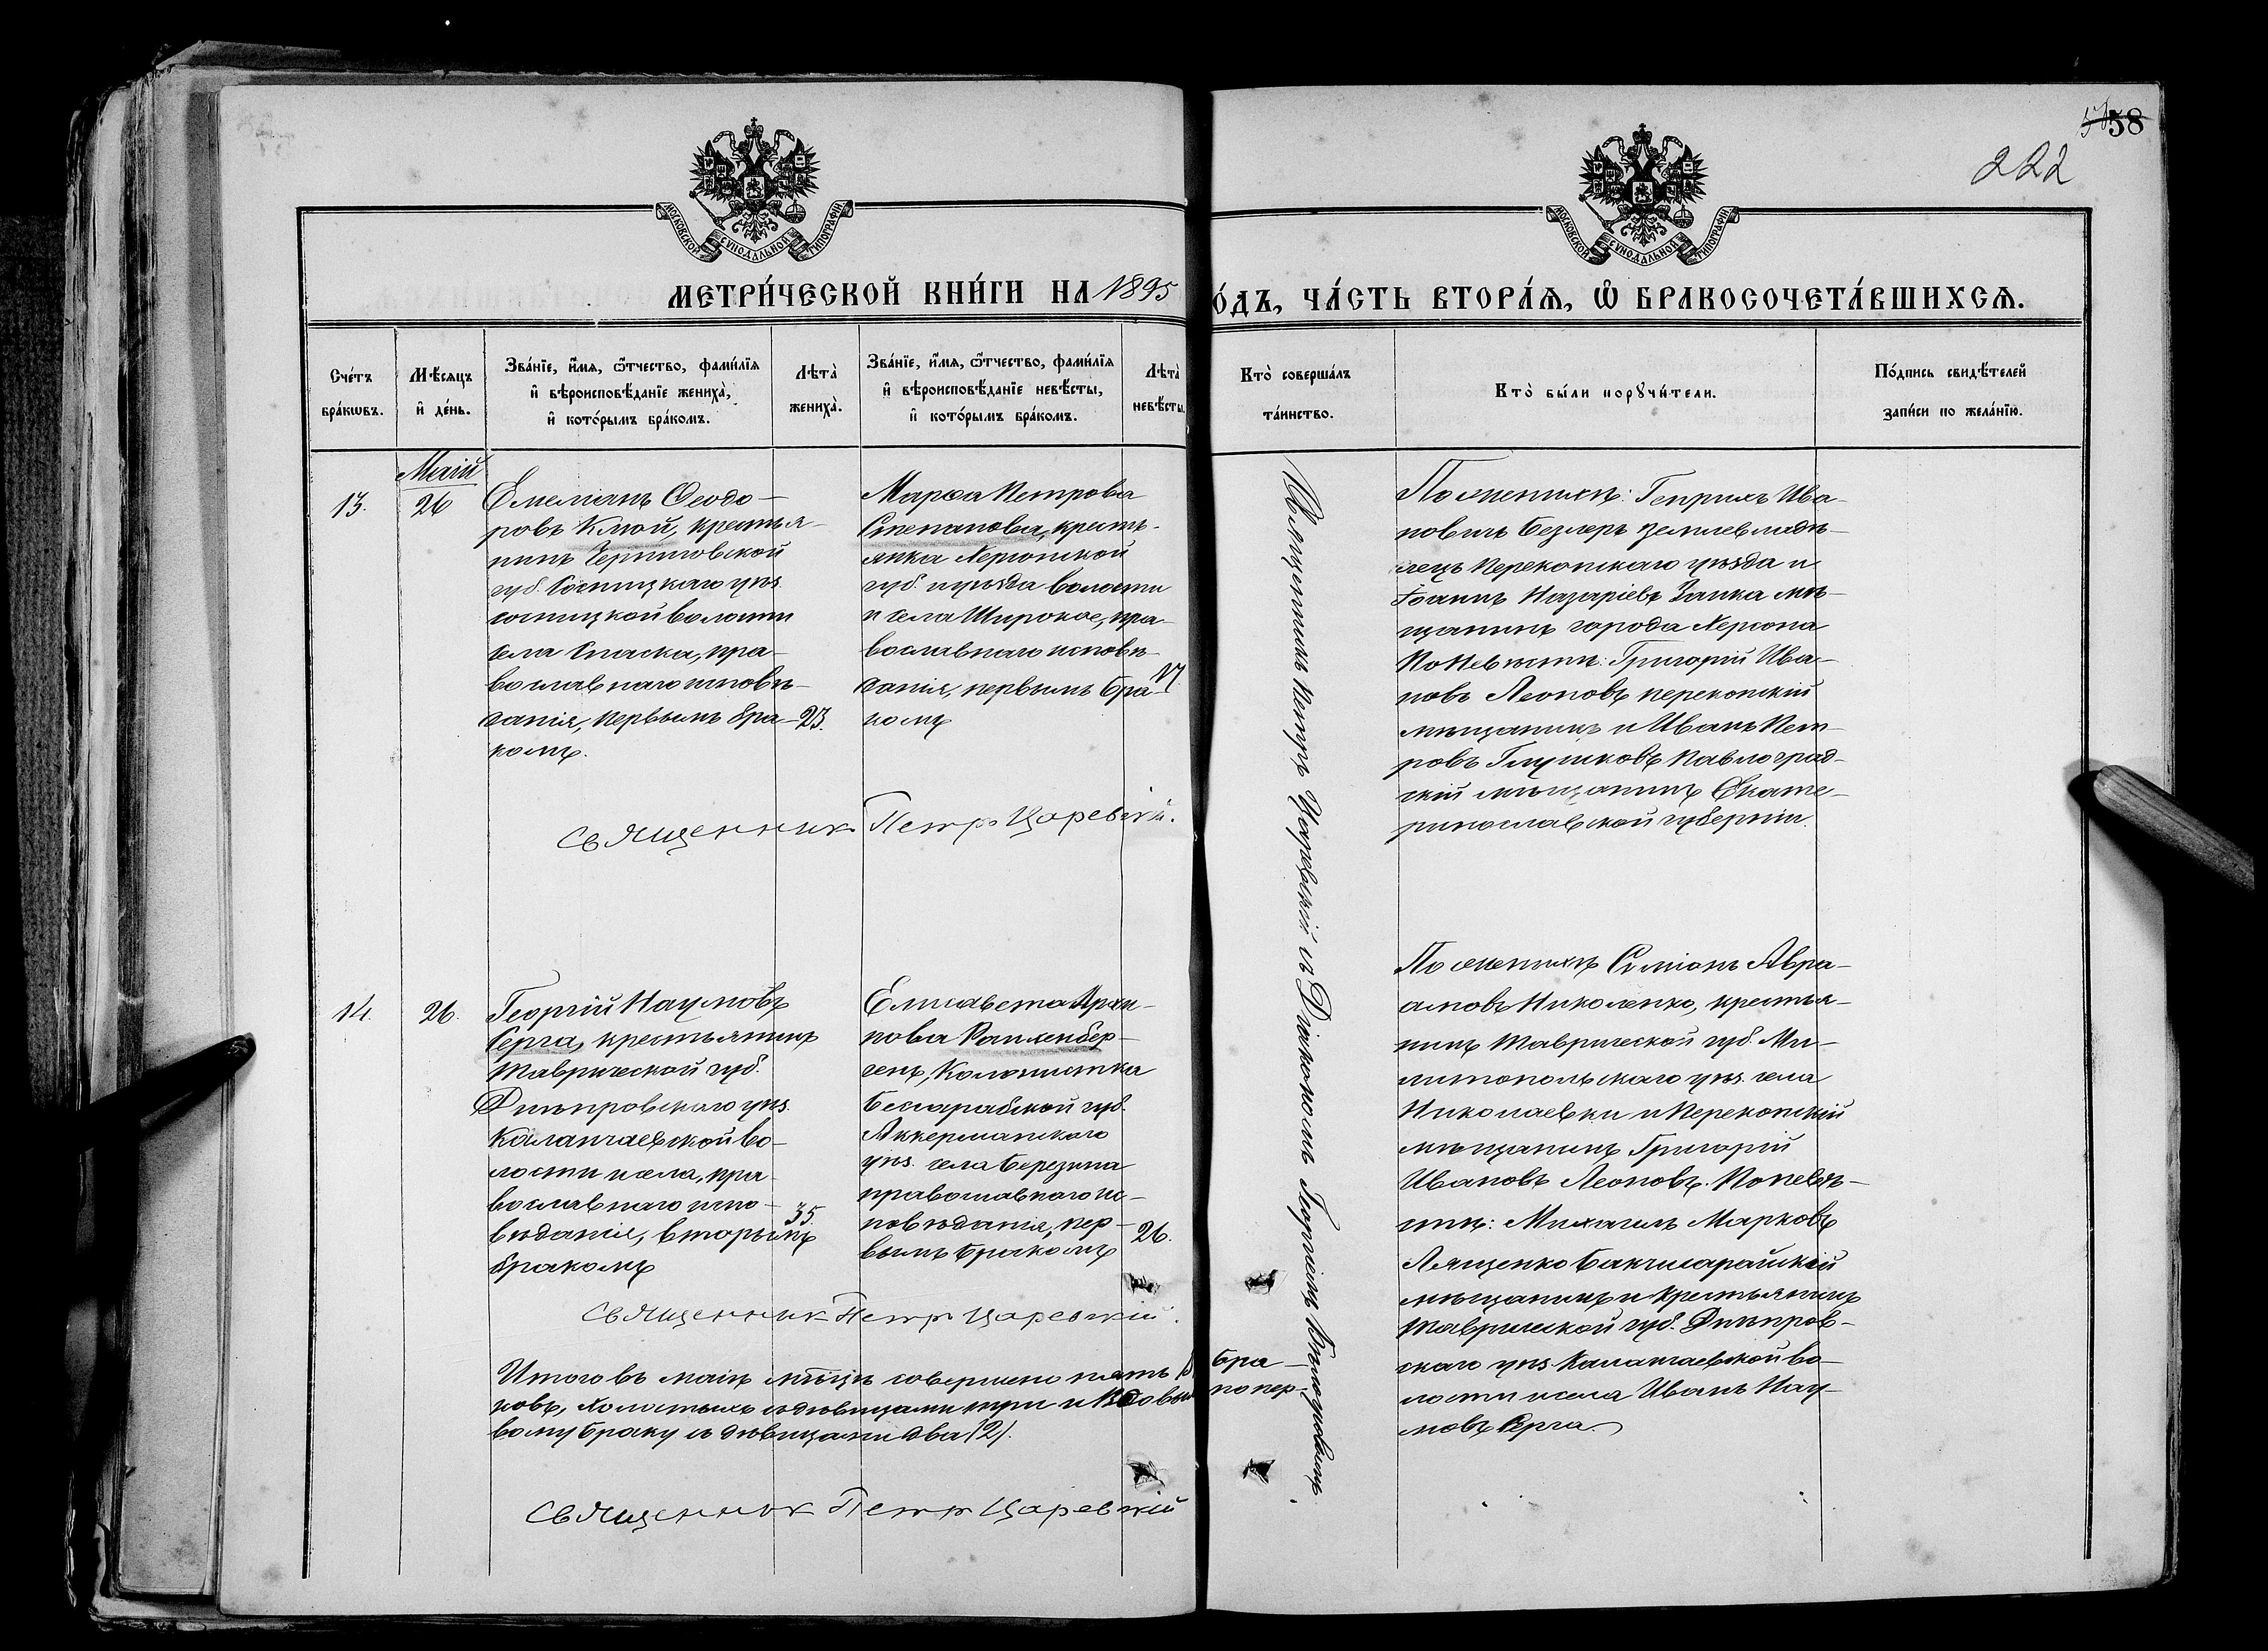 58
222
МОСКОВСКОЙ СѴНОДАЛЬНОЙ ТИПОГРАФІИ
МОСКОВСКОЙ СѴНОДАЛЬНОЙ ТИПОГРАФІИ
МЕТРИ́ЧЕСКОЙ КНИ́ГИ НА 1895
О́ДЪ, ЧА́СТЬ ВТОРА́Ѧ, Ѡ҆ БРАКОСОЧЕТА́ВШИХСѦ.
Сче́тъ
бра́кѡвъ.
Мѣ́сѧцъ
и҆ де́нь.
Зва́нїе, и҆́мѧ, ѻ҆́тчество, фами́лїѧ
и҆ вѣроисповѣ́данїе жениха̀,
и҆ кото́рымъ бра́комъ.
Лѣта̀
жениха̀.
Зва́нїе, и҆́мѧ, ѻ҆́тчество, фами́лїѧ
и҆ вѣроисповѣ́данїе невѣ́сты,
и҆ кото́рымъ бра́комъ.
Лѣта̀
невѣ́сты.
Кто̀ соверша́лъ
та́инство.
Кто̀ бы́ли порꙋчи́тели.
По́дпись свидѣ́телей
за́писи по жела́нїю.
Маій
13.
26
Емелианъ Ѳеодо-
ровъ Клюй, крестья-
нинъ Черниговской
губ. Сосницкаго уѣз.
сосницкой волости
села Спаска, пра-
вославнаго исповѣ-
данія, первымъ бра-
комъ.
23.
Марѳа Петрова
Степанова, кресть-
янка Херсонской
губ. и уѣзда волости
и села Широкое, пра-
вославнаго исповѣ-
данія, первымъ бра-
комъ
17
Священникъ Петръ Царевскій.
Священникъ Петръ Царевскій съ Діакономъ Георгіемъ
По женихѣ: Генрихъ Ива-
новичъ Безлеръ землевладѣ-
лецъ Перекопскаго уѣзда и
Іоаннъ Назаріевъ Заика мѣ-
щанинъ города Херсона
По Невѣстѣ: Григорій Ива-
новъ Леоновъ перекопскій
мѣщанинъ и Иванъ Пет-
ровъ Глушковъ Павлоград-
скій мѣщанинъ Екате-
ринославской губерніи.
14.
26.
Георгій Наумовъ
Серга, крестьянинъ
Таврической губ.
Днѣпровскаго уѣз.
Каланчаевской во-
лости и села, пра
вославнаго испо-
вѣданія, вторымъ
бракомъ
35.
Елисавета
нова
генъ, Колонистка
Бессарабской губ.
Аккерманскаго
уѣз. села Березина
православнаго ис-
повѣданія, пер-
вымъ бракомъ
26.
Священникъ Петръ Царевскій.
По женихѣ Симіонъ Авра-
амовъ Николенко, крестья-
нинъ Таврической губ. Ми-
литопольскаго уѣз. села
Николаевки и Перекопскій
мѣщанинъ Григорій
Ивановъ Леоновъ. По невѣ-
стѣ: Михаилъ Марковъ
Лященко Бакчисарайскій
мѣщанинъ и крестьянинъ
Таврической губ. Днѣпров-
скаго уѣз. Каланчаевской во-
лости и села Иванъ Нау-
мовъ Серга.
Итого въ маіѣ мѣсяцѣ совершено пять бра-
ковъ, Холостыхъ съ дѣвицами три и Вдовы по пер-
вому браку съ дѣвицами два (2).
Священник Петръ Царевскій